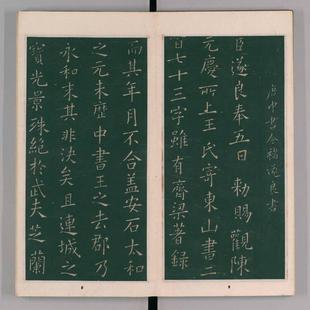 唐中書令褚遂良書
臣遂良奉五日勅賜觀陳
元慶所上王氏寄東山書二
百七十三字雖有齊梁著録
而其年月不合蓋安石太和
之元末歷中書王之去郡乃
永和末其非決矣且連城之
寶光景殊絕於武夫芝蘭